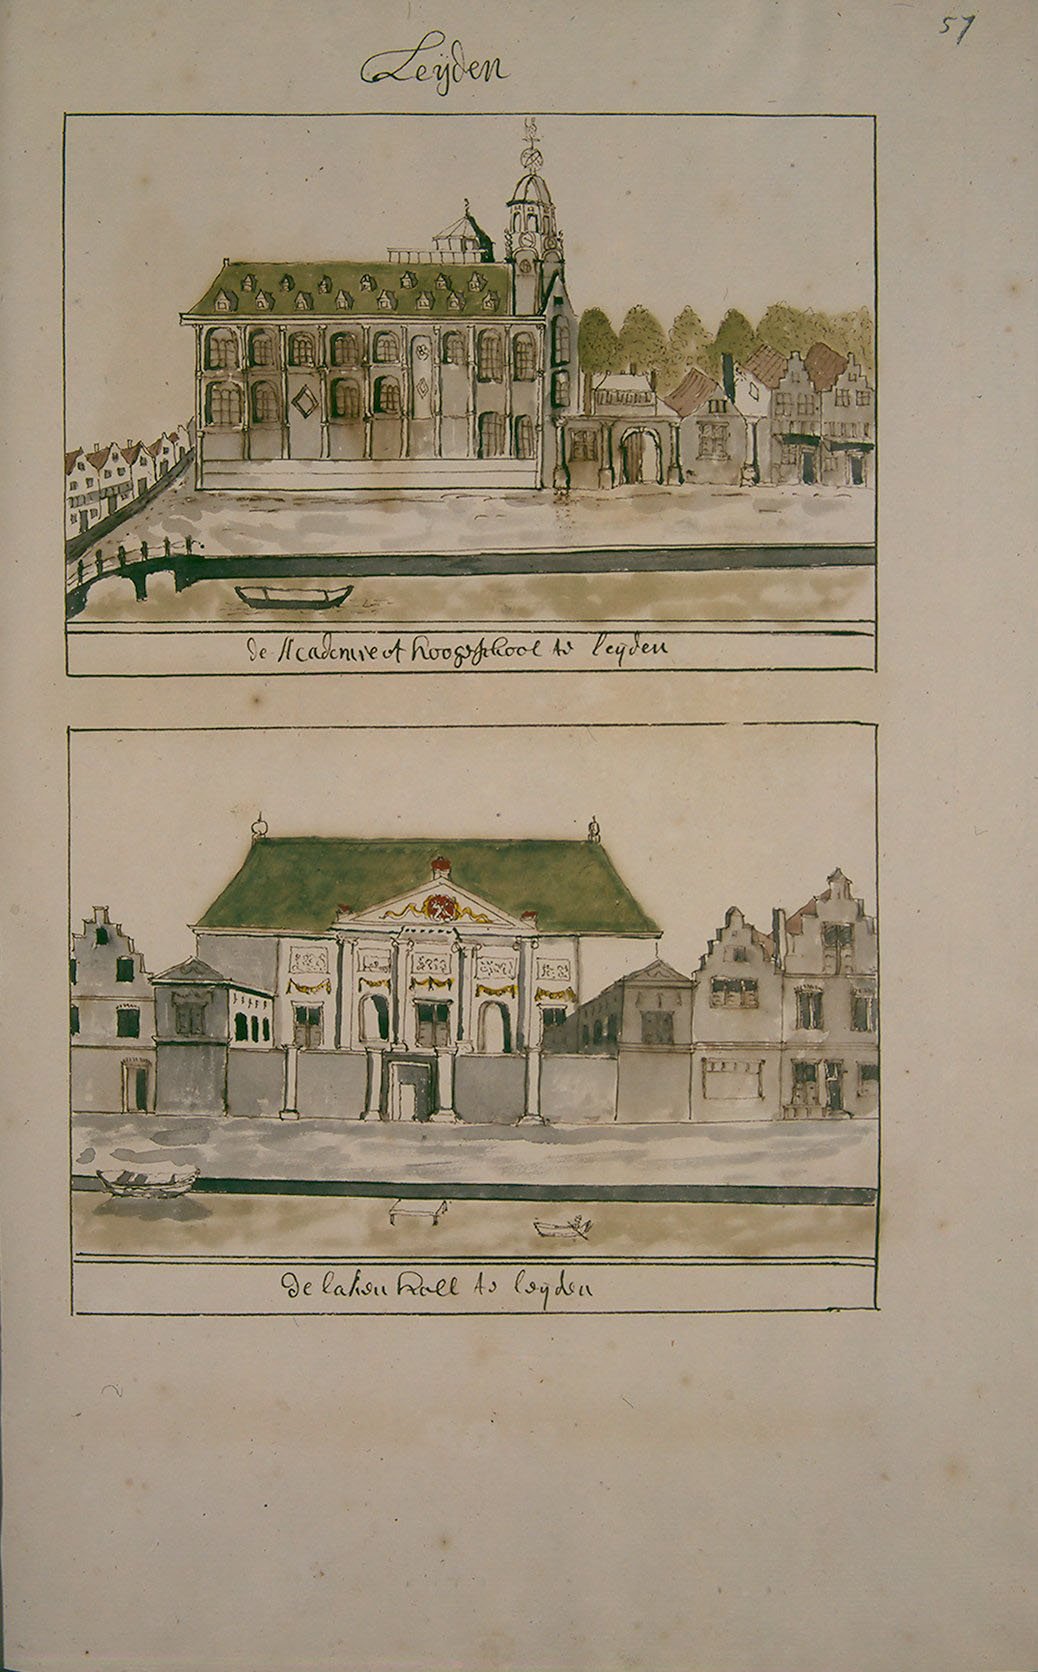 57
Leijden
de Academie of hoogeschool te leijden
De laken hall te leyden